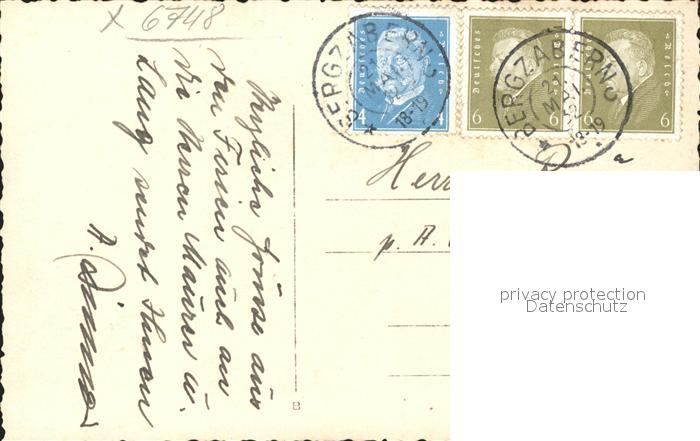 6748
Herzliche Grüsse aus
den Ferien auch an
die Herren Maurer u.
Lang sendet Ihnen
A.
Deutsches Reich
4
Deutsches Reich
6 6
Deutsches Reich
6 6
BERGZABERN
MAI
18-19
BERGZABERN
18-19
Herr
p. A.
privacy protection
Datenschutz